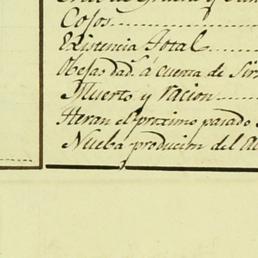 Cojos
Existencia Total
Obejas dad.s á cuenta de Sir
Muerto y racion
Heran el proximo pasado
Nueba producion del a